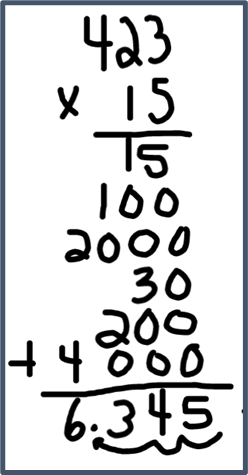 423
x 15
15
100
2000
30
200
+ 4000
6.345